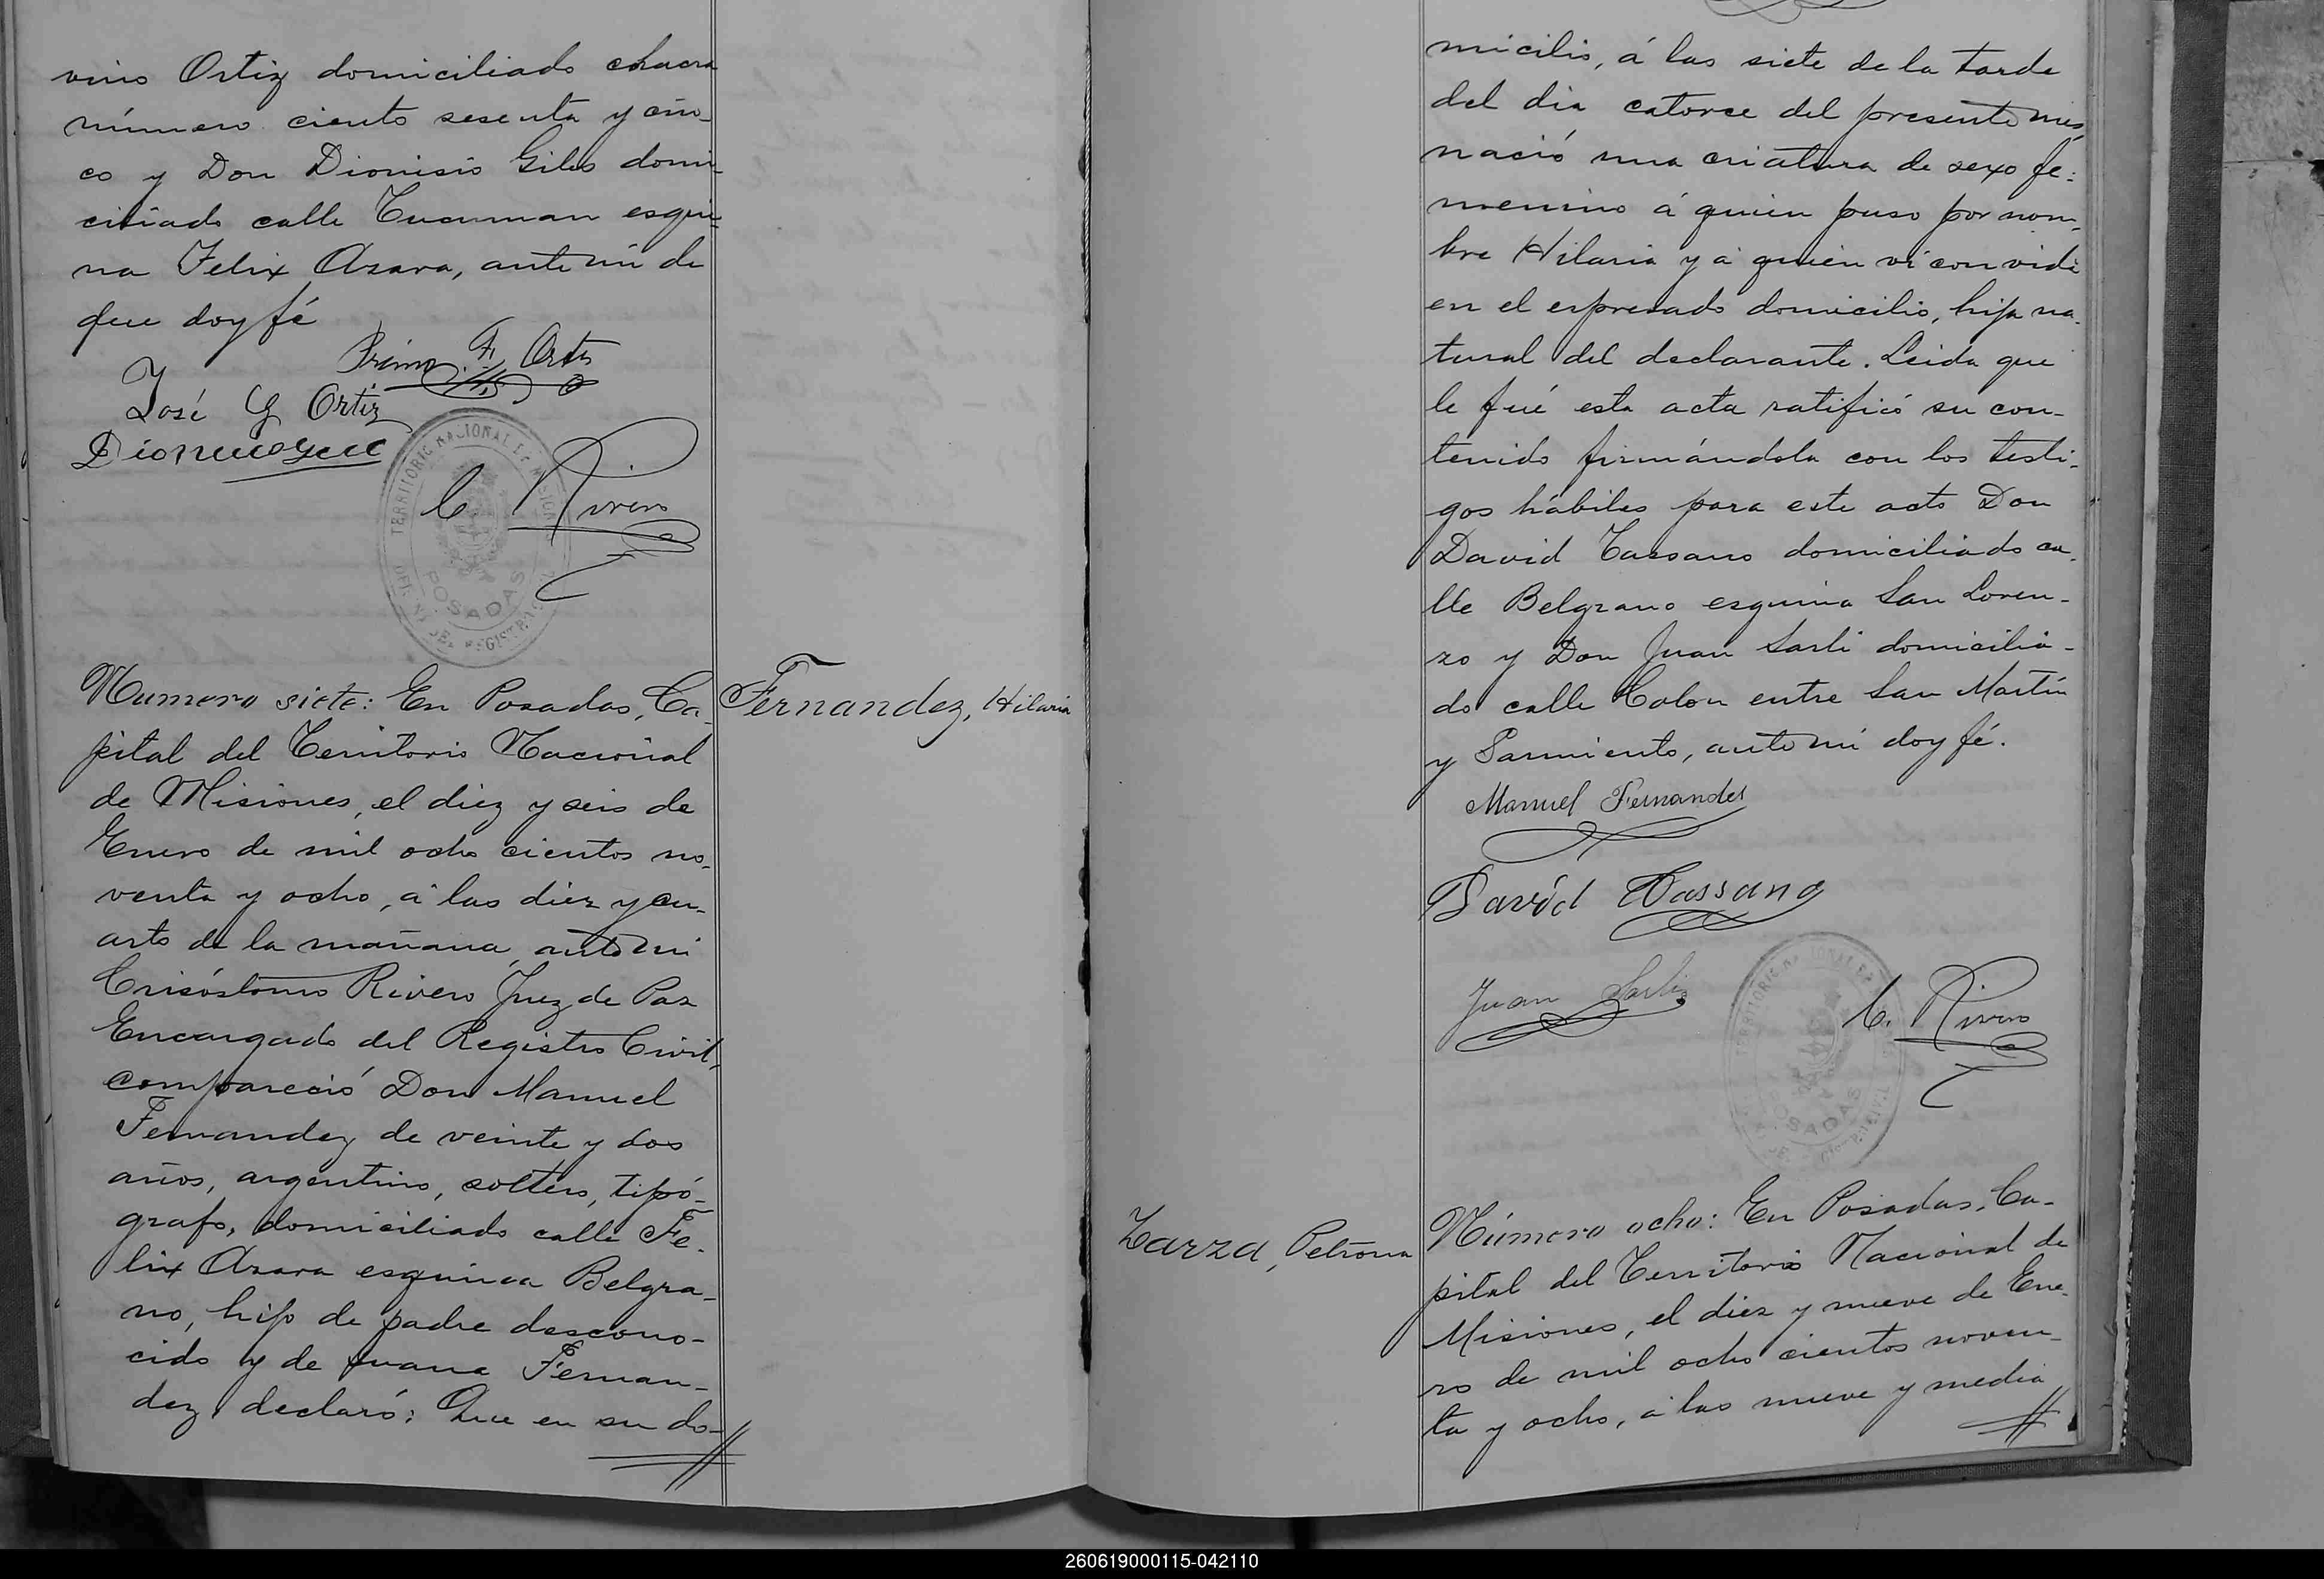 vino Ortiz domiciliado chacra
número ciento sesenta y cin-
co y Don Dionisio Giles domi-
ciliado calle Tucuman esqui-
na Felix Azara, ante mi de
que doy fé
Primo F. Ortiz
José G Ortiz
C Rivero
TERRITORIO NACIONAL DE MISIONES
POSADAS
Numero siete: En Posadas, Ca-
pital del Territorio Nacional
de Misiones, el diez y seis de
Enero de mil ocho cientos no-
venta y ocho, á las diez y cu-
arto de la mañana, ante mi
Crisóstomo Rivero Juez de Paz
Encargado del Registro Civil,
compareció Don Manuel
Fernandez de veinte y dos
años, argentino, soltero, tipó-
grafo, domiciliado calle Fe-
lix Azara esquina Belgra-
no, hijo de padre descono-
cido y de Juana Fernan-
dez, declaró: Que en su do-
Fernandez, Hilaria
micilio, á las siete de la tarde
del dia catorce del presente mes,
nació una criatura de sexo fe-
menino á quien puso por nom-
bre Hilaria y á quien vi con vida
en el espresado domicilio, hija na-
tural del declarante. Leida que
le fué esta acta ratificó su con-
tenido firmándola con los testi-
gos hábiles para este acto Don
David Tassano domiciliado ca-
lle Belgrano esquina San Loren-
zo y Don Juan Sarli domicilia-
do calle Colon entre San Martin
y Sarmiento, ante mi doy fé.
Manuel Fernandez
David Tassano
Juan Sarli
C. Rivero
POSADAS
Zarza, Petrona
Número ocho: En Posadas, Ca-
pital del Territorio Nacional de
Misiones, el diez y nueve de Ene-
ro de mil ocho cientos noven-
ta y ocho, á las nueve y media
260619000115-042110